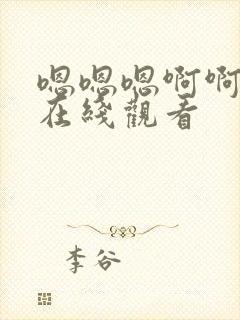 嗯嗯嗯啊啊
在綫觀看
李谷